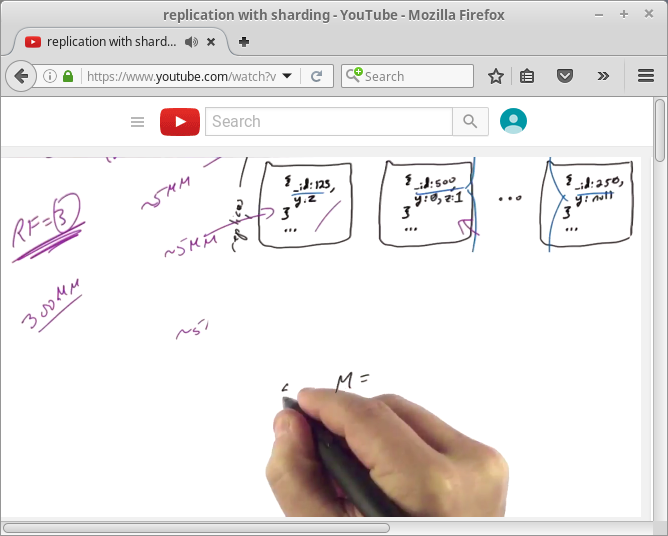 replication with sharding - YouTube - Mozilla Firefox
replication with shard...
https://www.youtube.com/watch?v
Search
Search
~5MM
{ _id:123,
y:z
}
...
{ _id:500,
y:0, z:1
}
...
...
{ _id:250,
y: null
}
...
RF=3
~5MM
300MM
M =